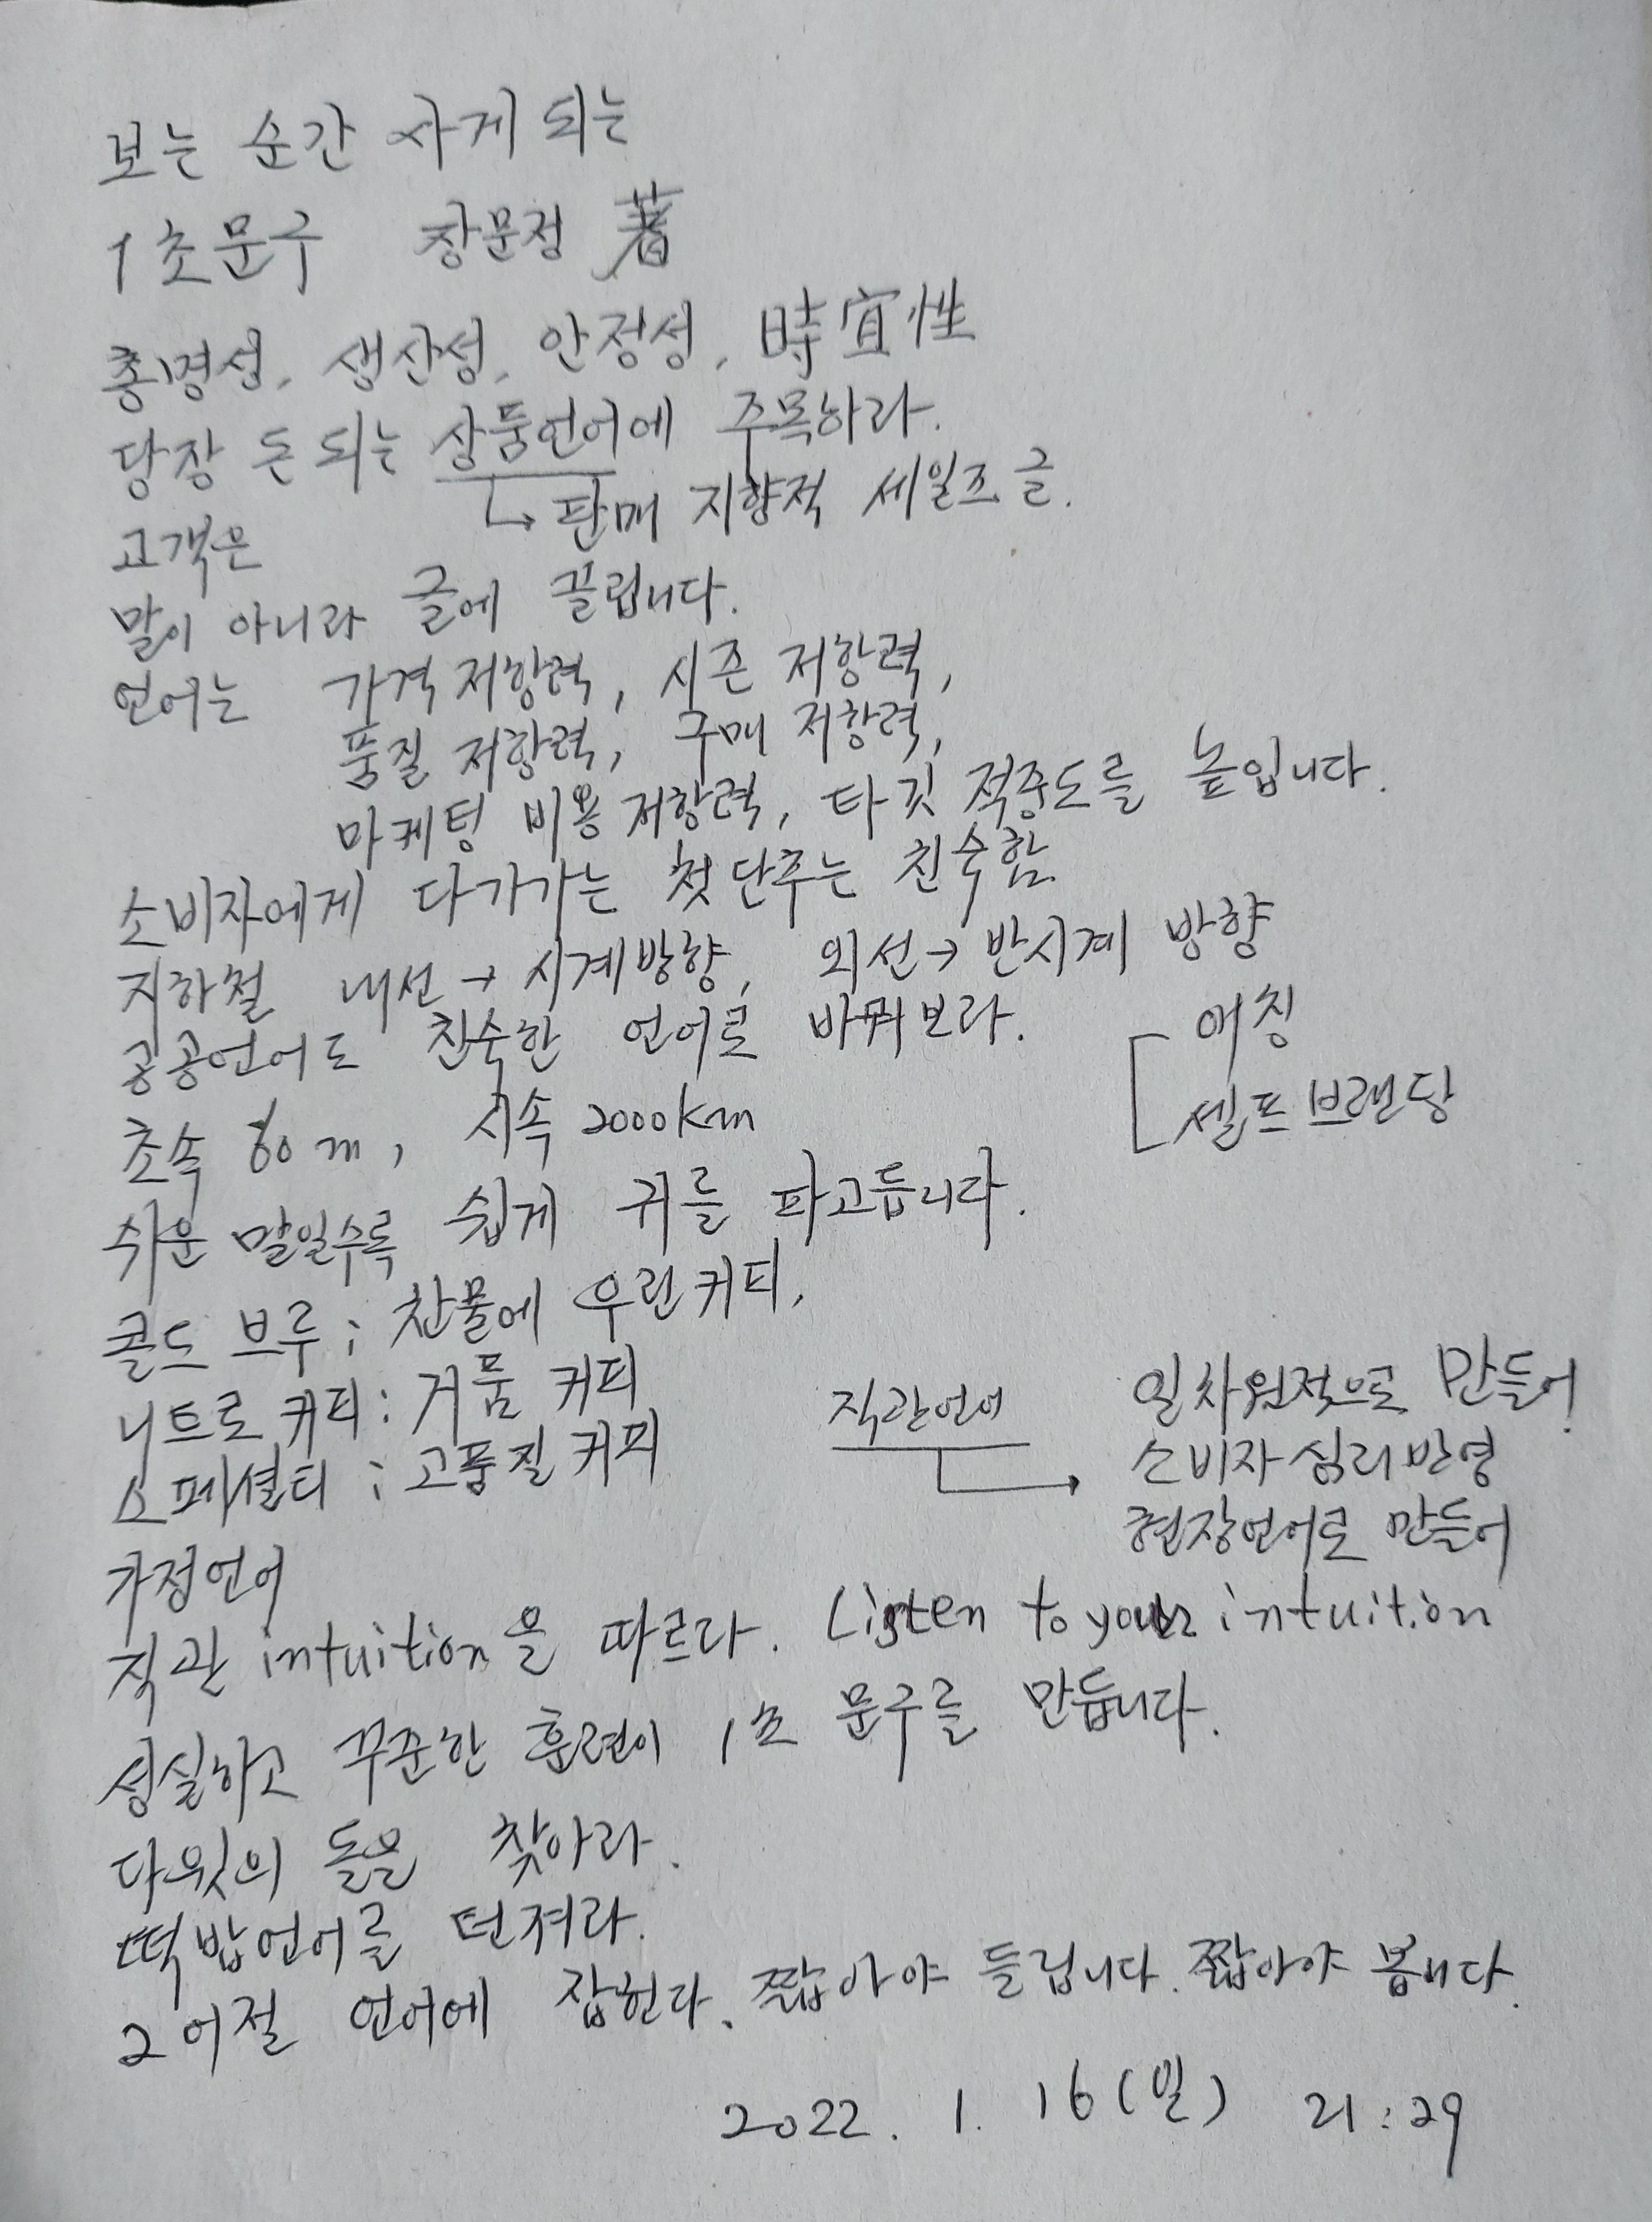 보는 순간 사게 되는
1초문구 장문정 著
총명성, 생산성, 안정성, 時宜性
당장 돈 되는 상품언어에 주목하라.
↳ 판매 지향적 세일즈 글.
고객은
말이 아니라 글에 끌립니다.
언어는 가격 저항력, 시즌 저항력,
품질 저항력, 구매 저항력,
마케팅 비용 저항력, 타깃 적중도를 높입니다.
소비자에게 다가가는 첫 단추는 친숙함
지하철 내선 → 시계방향, 외선 → 반시계 방향
공공언어도 친숙한 언어로 바꿔보라.
애칭
셀프 브랜딩
초속 60m, 시속 2000km
쉬운 말일수록 쉽게 귀를 파고듭니다.
콜드 브루 : 찬물에 우린 커피,
니트로 커피 : 거품 커피
스페셜티 : 고품질 커피
직관언어 → 일차원적으로 만들어
소비자 심리 반영
현장언어로 만들어
가정언어
직관 intuition을 따르라. Listen to your intuition
성실하고 꾸준한 훈련이 1초 문구를 만듭니다.
다윗의 돌을 찾아라.
떡밥언어를 던져라.
2어절 언어에 잡힌다. 짧아야 들립니다. 짧아야 봅니다.
2022. 1. 16(일) 21:29